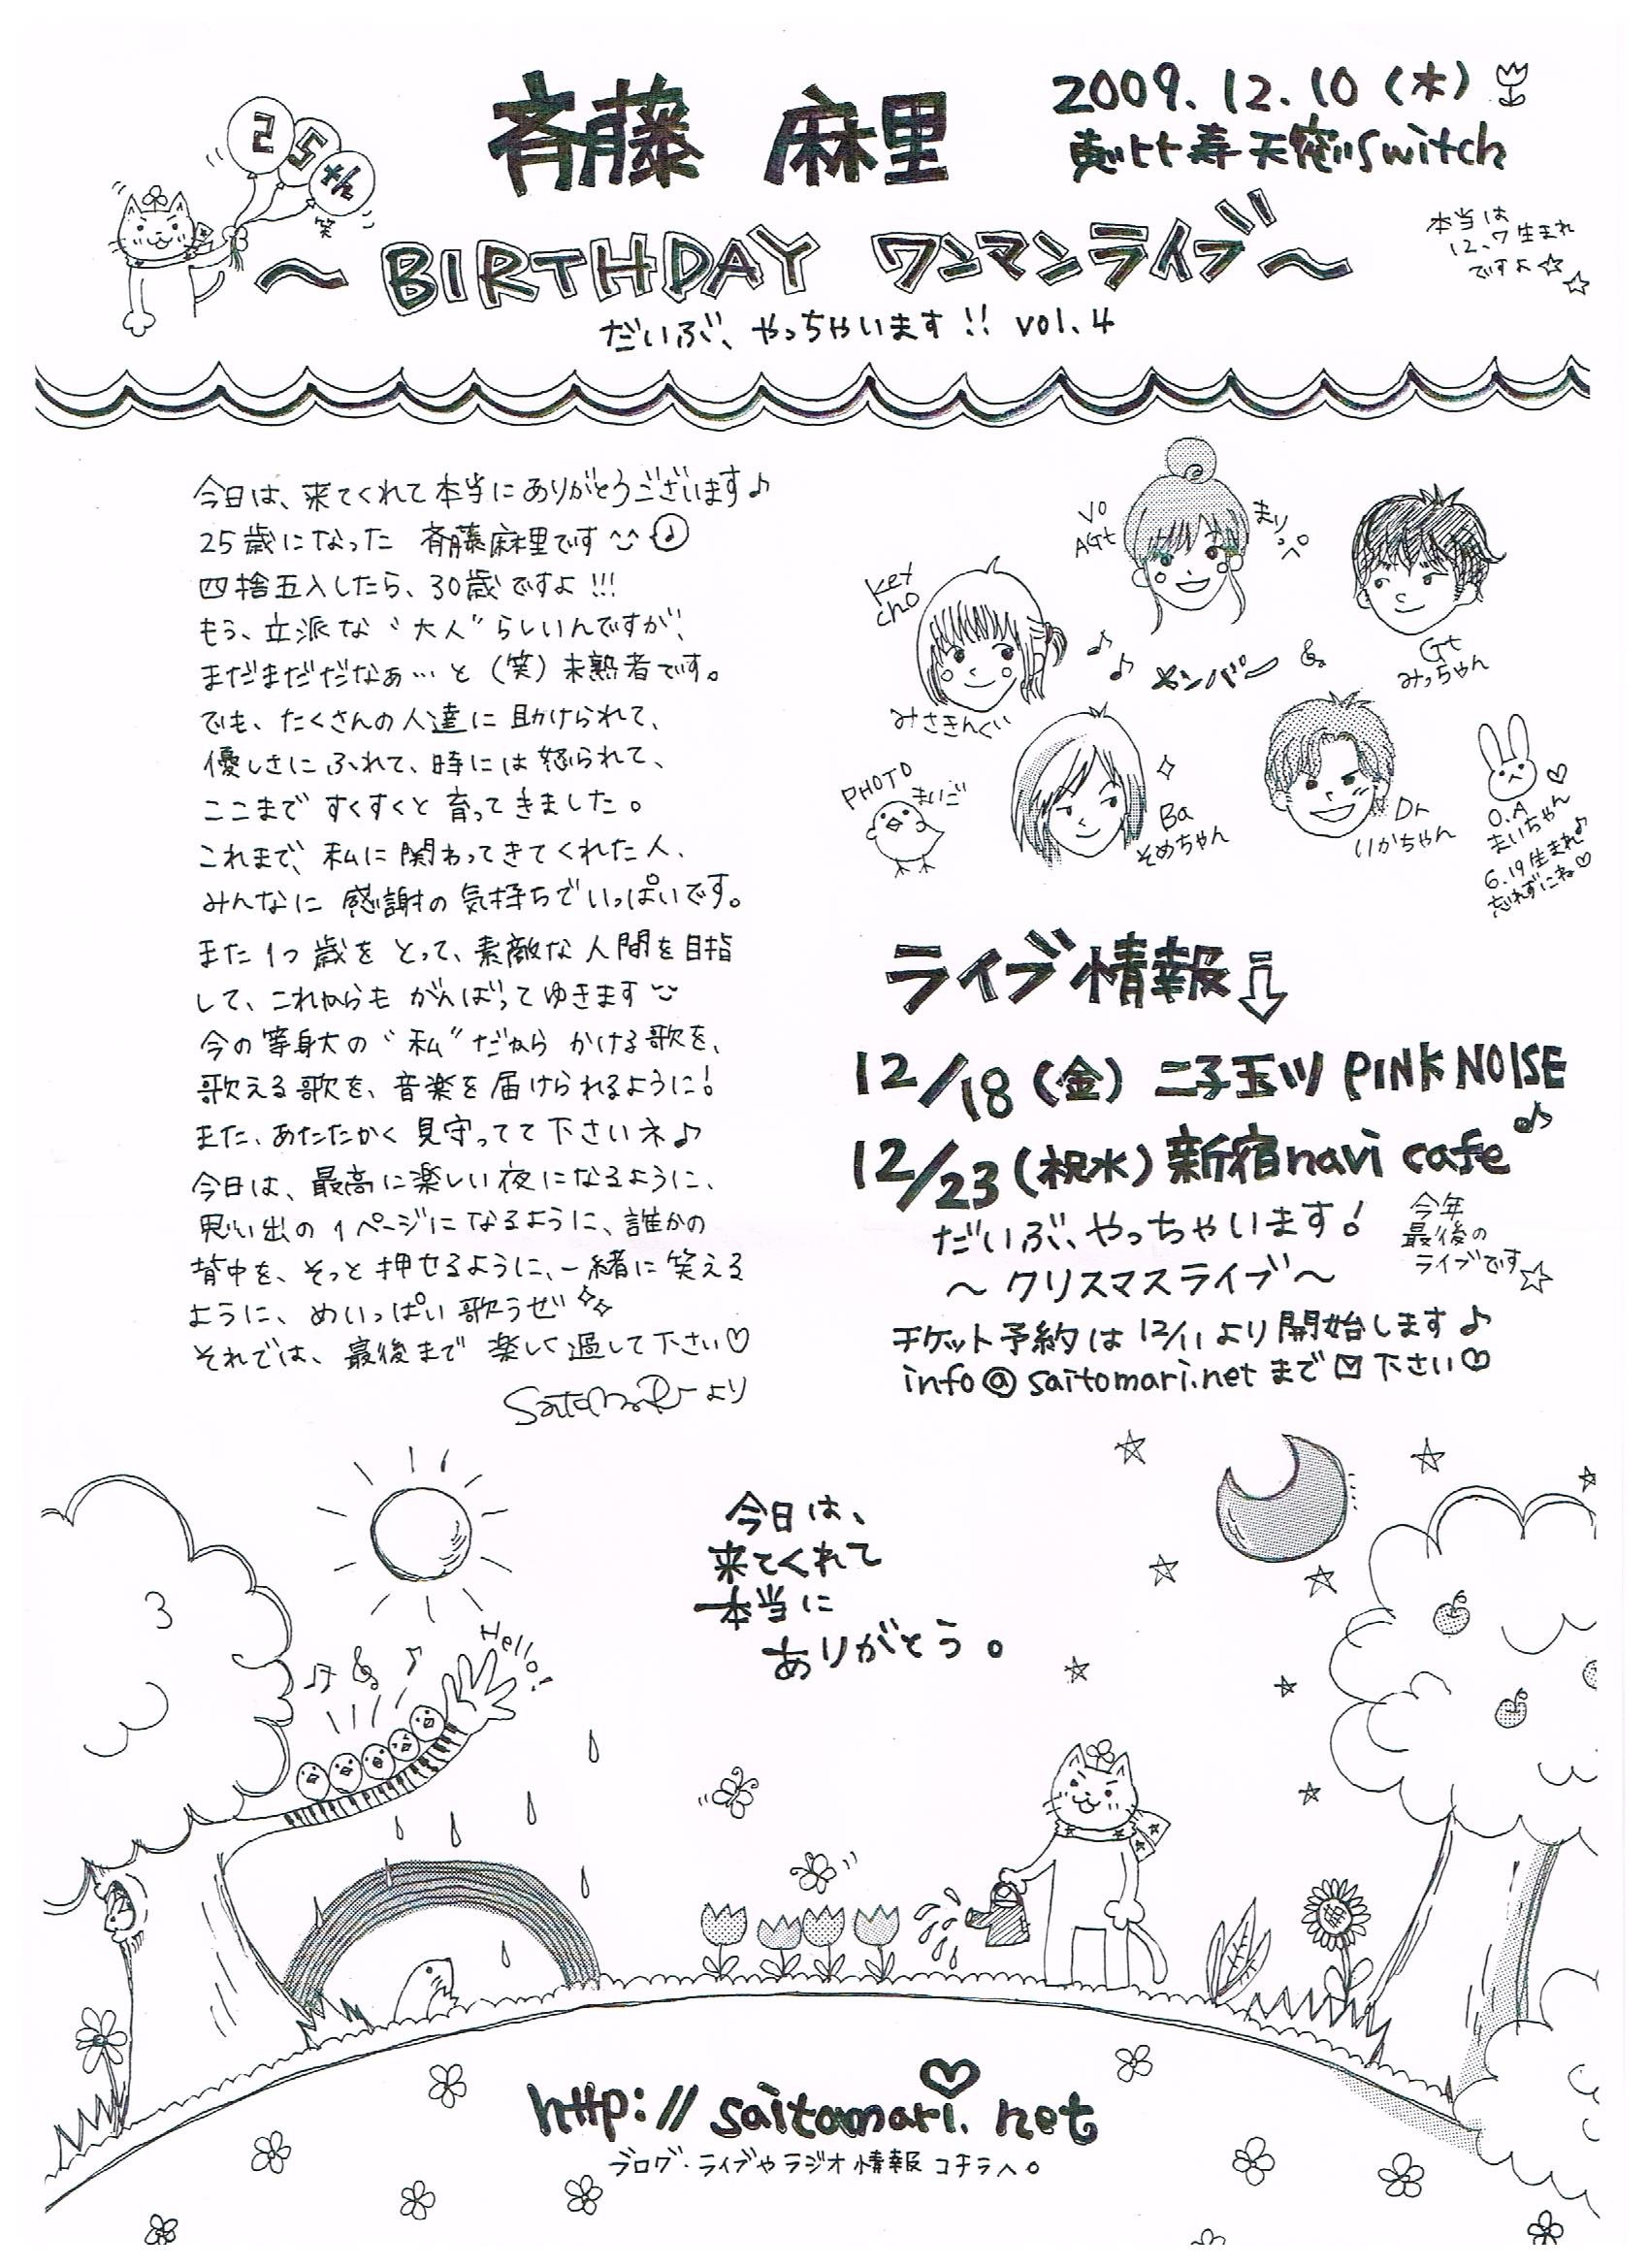 25才
笑
斉藤 麻里
2009.12.10（木）
恵比寿天窓.switch
〜BIRTHDAY ワンマンライブ〜
本当は
12.7生まれ
ですよ☆
だいぶ、やっちゃいます!! vol.4
今日は、来てくれて本当にありがとうございます♪
25歳になった 斉藤麻里です
四捨五入したら、30歳ですよ!!!
もう、立派な“大人”らしいんですが、
まだまだだなぁ…と（笑）未熟者です。
でも、たくさんの人達に助けられて、
優しさにふれて、時には怒られて、
ここまですくすくと育ってきました。
これまで、私に関わってきてくれた人、
みんなに感謝の気持ちでいっぱいです。
また1つ歳をとって、素敵な人間を目指
して、これからもがんばってゆきます
今の等身大の“私”だからかける歌を、
歌える歌を、音楽を届けられるように!
また、あたたかく見守ってて下さいネ♪
今日は、最高に楽しい夜になるように、
思い出の1ページになるように、誰かの
背中を、そっと押せるように、一緒に笑える
ように、めいっぱい歌うぜ
それでは、最後まで楽しく過して下さい♡
SaitoMariより
Vo
AGt
まりっぺ
Key
cho
みさきんぐぃ
メンバー
Gt
みっちゃん
PHOTO
まいご
Ba
そめちゃん
Dr
いかちゃん
O.A
まいちゃん
6.19生まれ♪
忘れずにね♡
ライブ情報⇩
12/18（金）二子玉川 PINK NOISE
12/23（祝水）新宿navi cafe♪
だいぶ、やっちゃいます!
〜クリスマスライブ〜
今年
最後の
ライブです☆
チケット予約は12/11より開始します♪
info@saitomari.netまで✉下さい♡
今日は、
来てくれて
本当に
ありがとう。
Hello!
http://saitomari.net
ブログ・ライブやラジオ情報コチラへ。